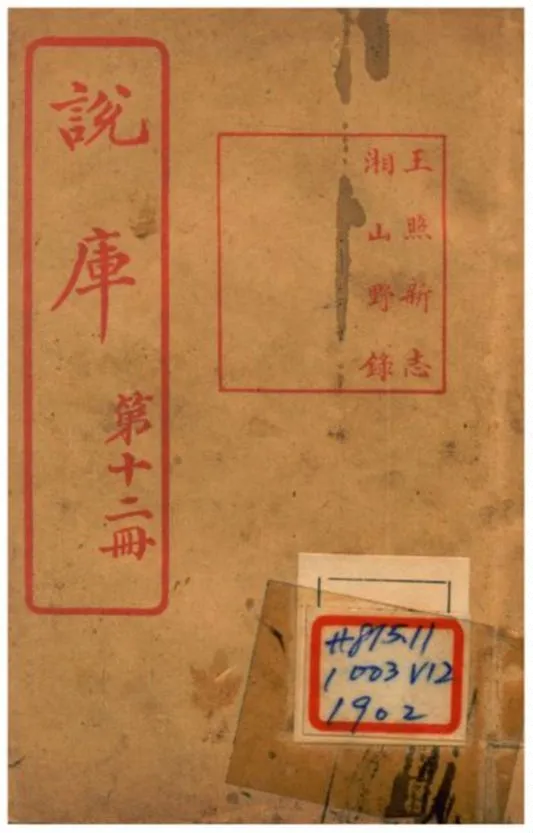 王照新志
湘山野錄
說庫
第十二冊
H875.11
1003 V12
1902